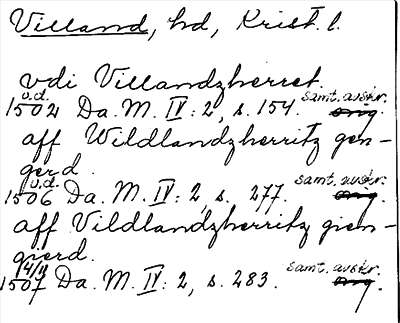 Villand, hd, Krist. l.
vdi Villandzherret.
1502 u.d. Da. M. IV: 2, s. 154. samt. avskr. orig.
aff Wildlandzherritz gen-
gerd.
1506 u.d. Da. M. IV: 2, s. 277. samt. avskr. orig.
aff Vildlandzherritz gien-
gierd.
1507 14/11 Da. M. IV: 2, s. 283. samt. avskr. orig.